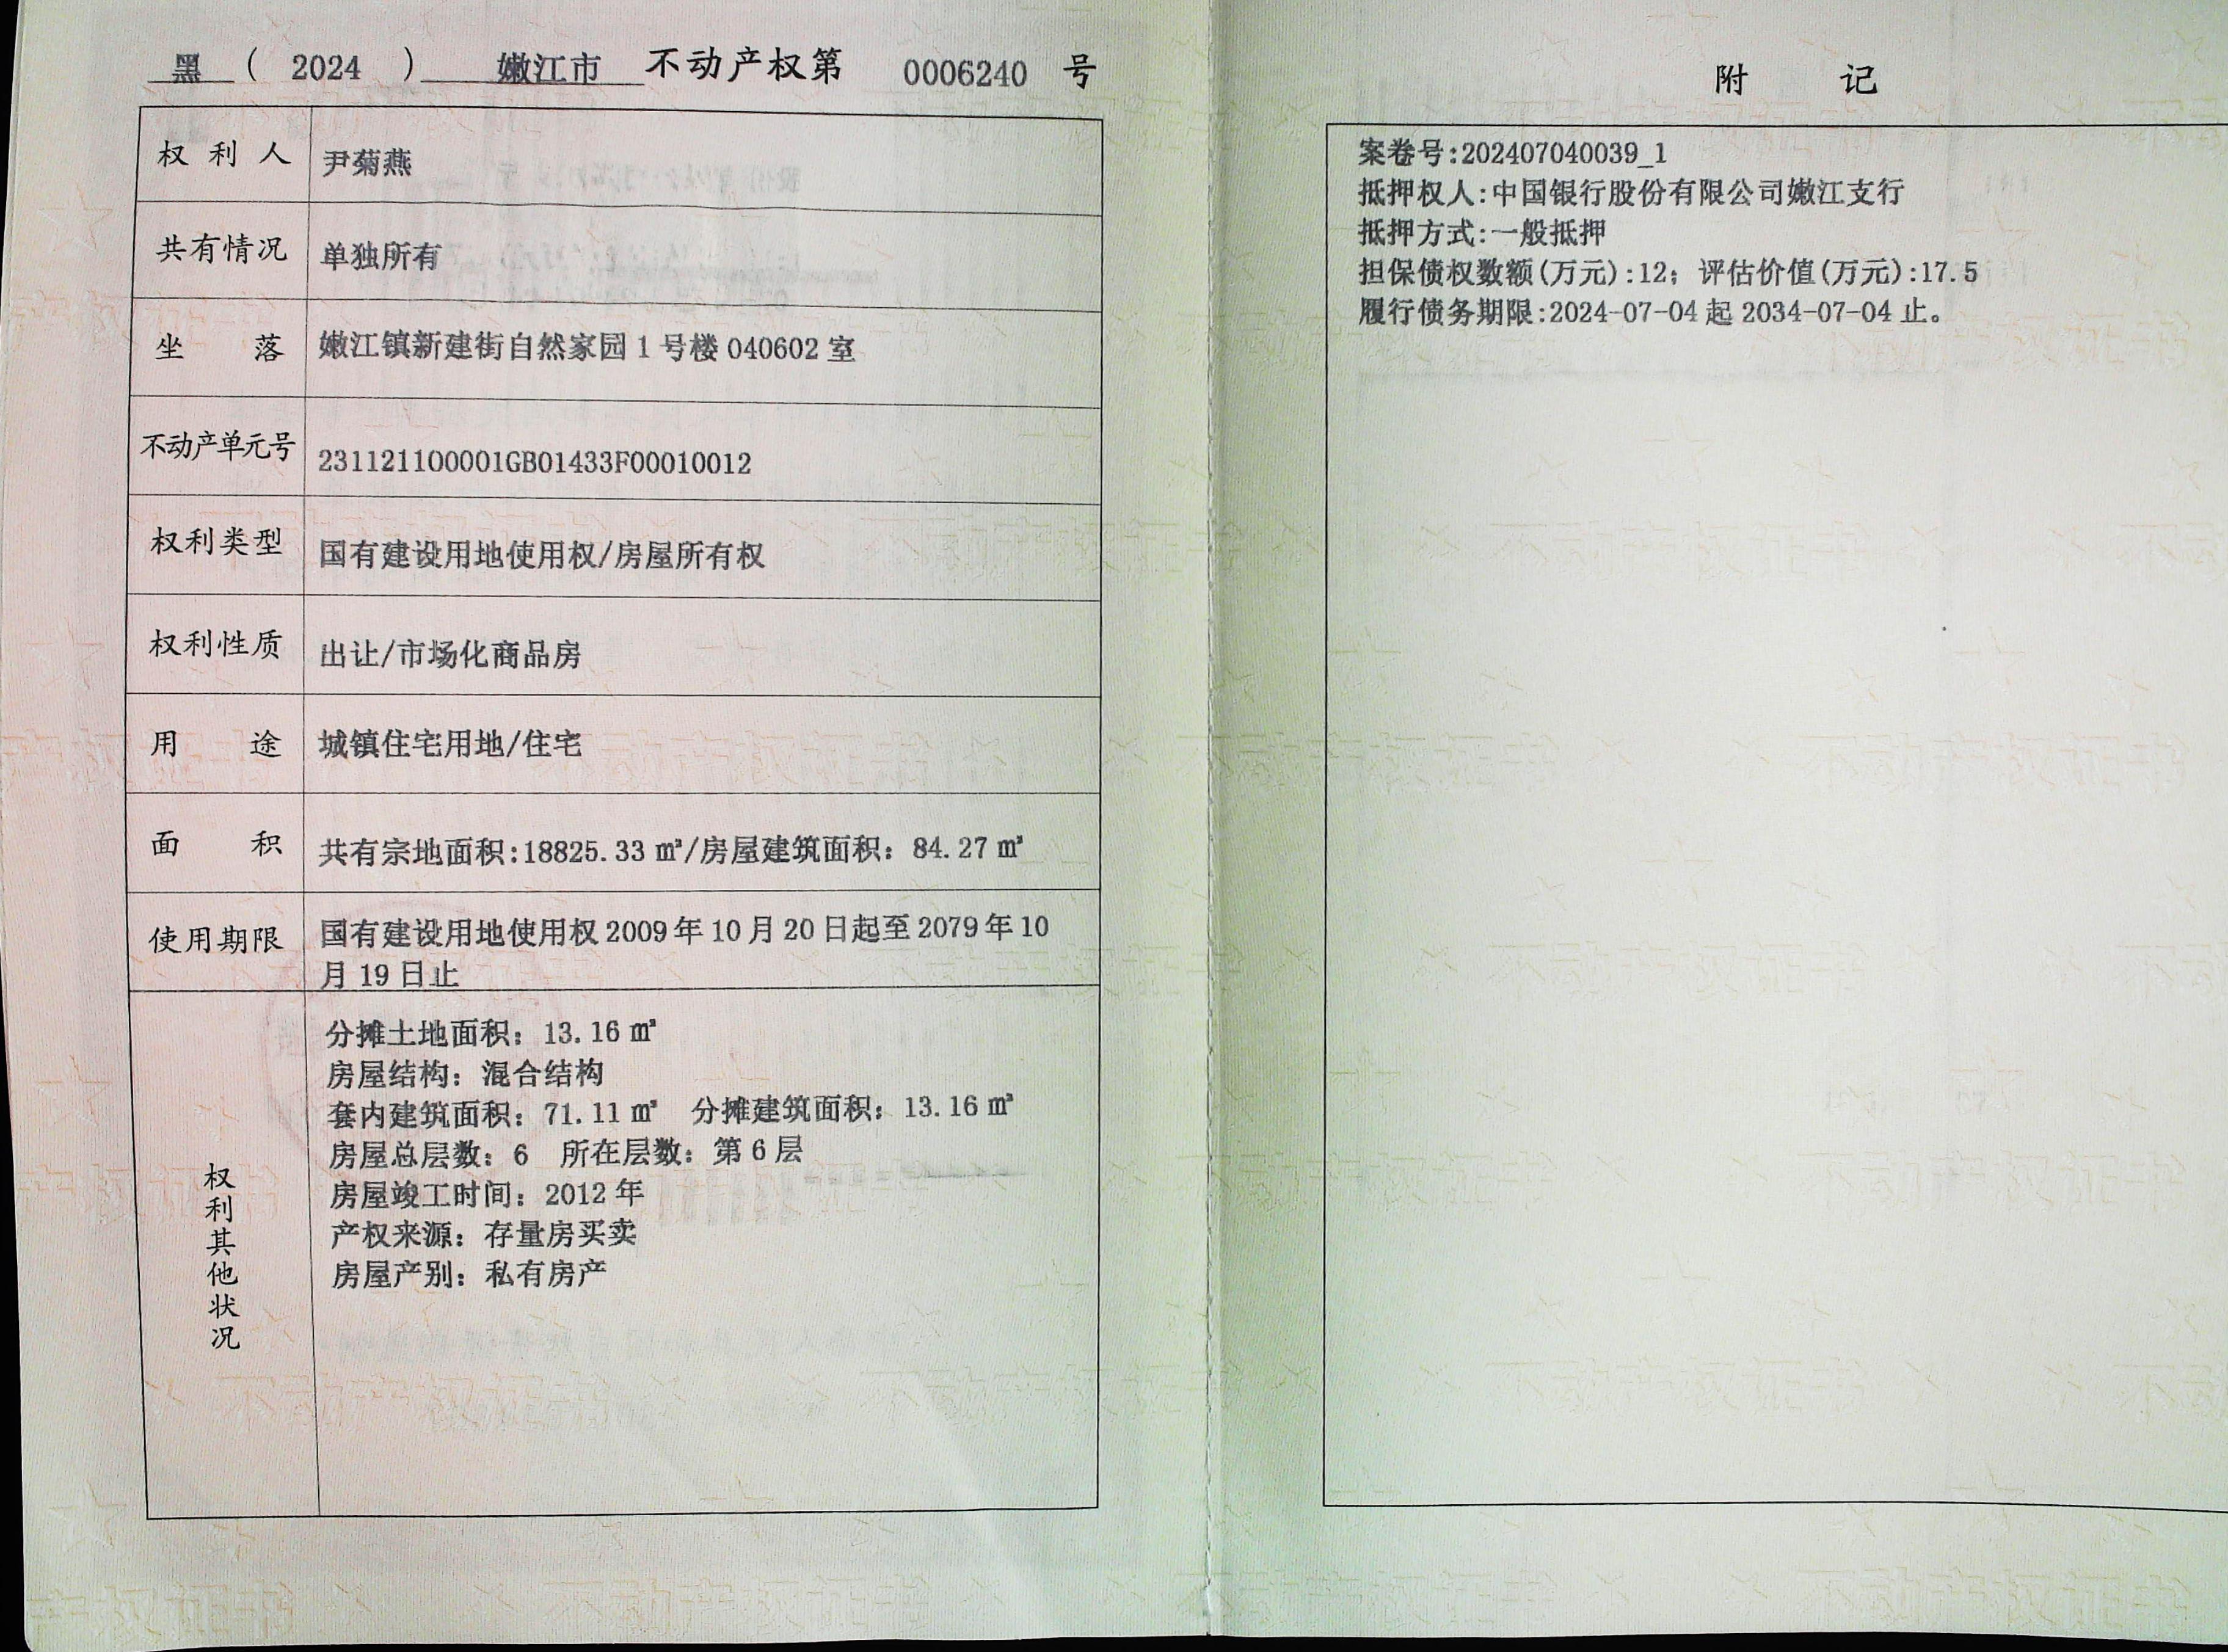 黑 ( 2024 ) 嫩江市 不动产权第 0006240 号
权利人 尹菊燕
共有情况 单独所有
坐落 嫩江镇新建街自然家园1号楼040602室
不动产单元号 231121100001GB01433F00010012
权利类型 国有建设用地使用权/房屋所有权
权利性质 出让/市场化商品房
用途 城镇住宅用地/住宅
面积 共有宗地面积:18825.33㎡/房屋建筑面积：84.27㎡
使用期限 国有建设用地使用权2009年10月20日起至2079年10
月19日止
权利其他状况
分摊土地面积：13.16㎡
房屋结构：混合结构
套内建筑面积：71.11㎡ 分摊建筑面积：13.16㎡
房屋总层数：6 所在层数：第6层
房屋竣工时间：2012年
产权来源：存量房买卖
房屋产别：私有房产
附记
案卷号:202407040039_1
抵押权人:中国银行股份有限公司嫩江支行
抵押方式:一般抵押
担保债权数额(万元):12；评估价值(万元):17.5
履行债务期限:2024-07-04起2034-07-04止。